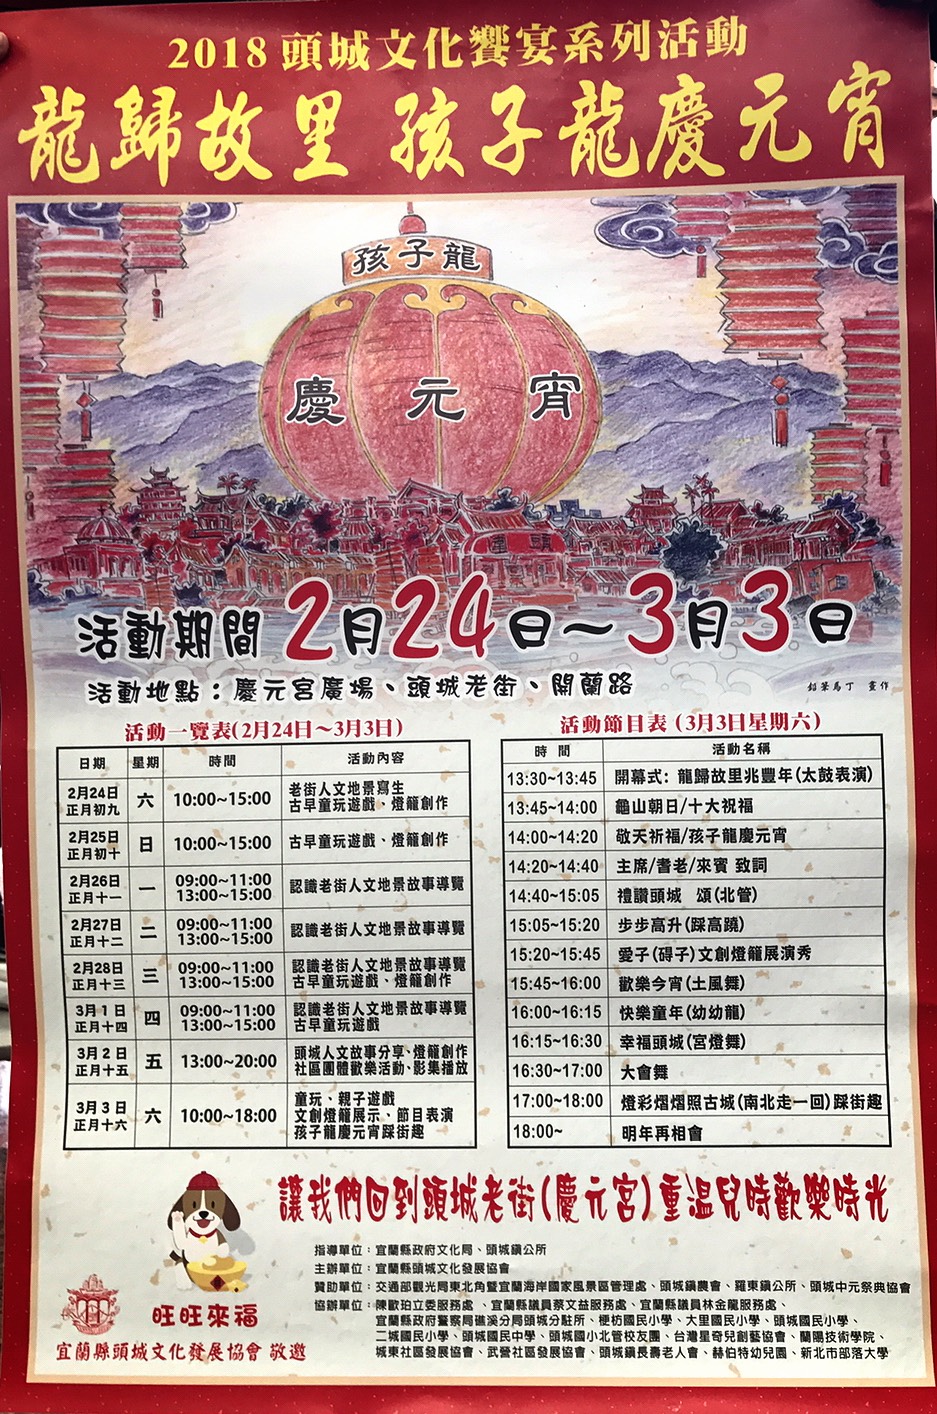 2018 頭城文化饗宴系列活動
龍歸故里 孩子龍慶元宵
孩子龍
慶元宵
頭圍
活動期間 2月24日～3月3日
活動地點：慶元宮廣場、頭城老街、開蘭路
鉛筆馬丁 畫作
活動一覽表(2月24日～3月3日)
日期 星期 時間 活動內容
2月24日 正月初九 六 10:00~15:00 老街人文地景寫生 古早童玩遊戲、燈籠創作
2月25日 正月初十 日 10:00~15:00 古早童玩遊戲、燈籠創作
2月26日 正月十一 一 09:00~11:00 13:00~15:00 認識老街人文地景故事導覽
2月27日 正月十二 二 09:00~11:00 13:00~15:00 認識老街人文地景故事導覽
2月28日 正月十三 三 09:00~11:00 13:00~15:00 認識老街人文地景故事導覽 古早童玩遊戲、燈籠創作
3月1日 正月十四 四 09:00~11:00 13:00~15:00 認識老街人文地景故事導覽 古早童玩遊戲
3月2日 正月十五 五 13:00~20:00 頭城人文故事分享、燈籠創作 社區團體歡樂活動、影集播放
3月3日 正月十六 六 10:00~18:00 童玩、親子遊戲 文創燈籠展示、節目表演 孩子龍慶元宵踩街趣
活動節目表 (3月3日星期六)
時間 活動名稱
13:30~13:45 開幕式：龍歸故里兆豐年(太鼓表演)
13:45~14:00 龜山朝日/十大祝福
14:00~14:20 敬天祈福/孩子龍慶元宵
14:20~14:40 主席/耆老/來賓 致詞
14:40~15:05 禮讚頭城 頌(北管)
15:05~15:20 步步高升(踩高蹺)
15:20~15:45 愛子(碍子)文創燈籠展演秀
15:45~16:00 歡樂今宵(土風舞)
16:00~16:15 快樂童年(幼幼龍)
16:15~16:30 幸福頭城(宮燈舞)
16:30~17:00 大會舞
17:00~18:00 燈彩熠熠照古城(南北走一回)踩街趣
18:00~ 明年再相會
讓我們回到頭城老街(慶元宮)重溫兒時歡樂時光
指導單位：宜蘭縣政府文化局、頭城鎮公所
主辦單位：宜蘭縣頭城文化發展協會
贊助單位：交通部觀光局東北角暨宜蘭海岸國家風景區管理處、頭城鎮農會、羅東鎮公所、頭城中元祭典協會
協辦單位：陳歐珀立委服務處、宜蘭縣議員蔡文益服務處、宜蘭縣議員林金龍服務處、
宜蘭縣政府警察局礁溪分局頭城分駐所、梗枋國民小學、大里國民小學、頭城國民小學、
二城國民小學、頭城國民中學、頭城國小北管校友團、台灣星奇兒創藝協會、蘭陽技術學院、
城東社區發展協會、武營社區發展協會、頭城鎮長壽老人會、赫伯特幼兒園、新北市部落大學
旺旺來福
宜蘭縣頭城文化發展協會 敬邀